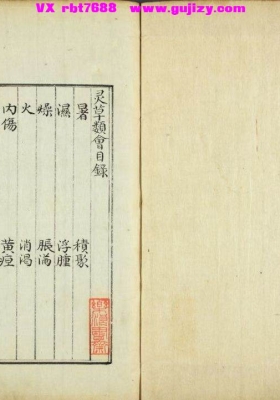 VX rbt7688   www.gujizy.com
灵草類會目錄
暑 積聚
濕 浮腫
燥 脹滿
火 消渴
内傷 黄疸